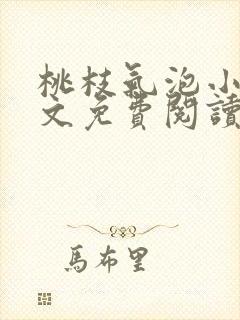 桃枝氣泡小
文免費閱讀
馬布里